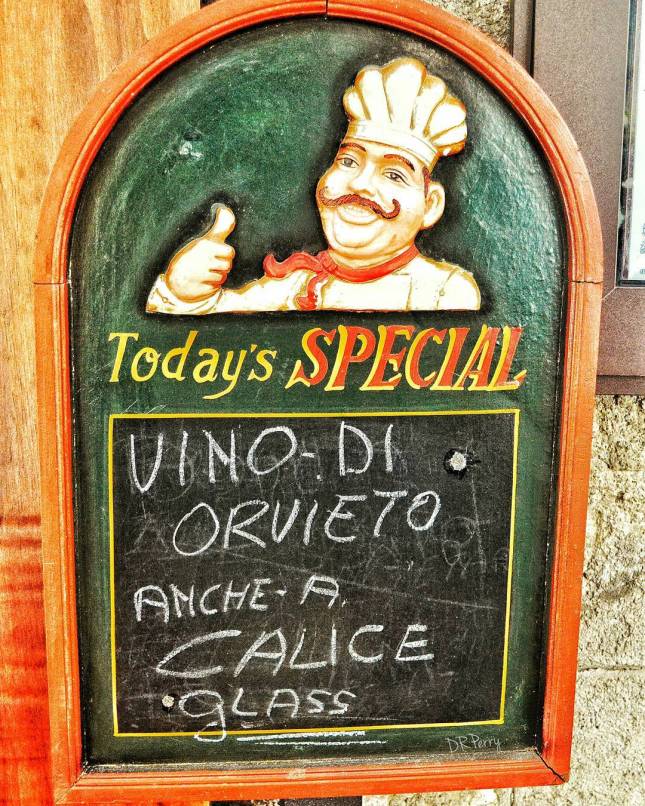 Today's SPECIAL
VINO-DI
ORVIETO
ANCHE-A
CALICE
GLASS
DR Perry